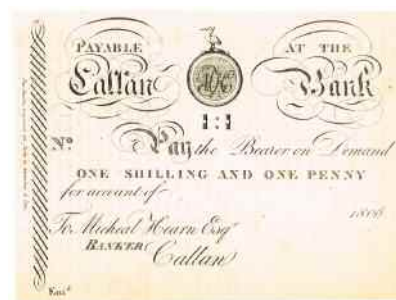 PAYABLE AT THE
Callan Bank
1:1
Nº Pay the Bearer on Demand
ONE SHILLING AND ONE PENNY
for account of
180
To Micheal Hearn Esqr
BANKER Callan
Entd